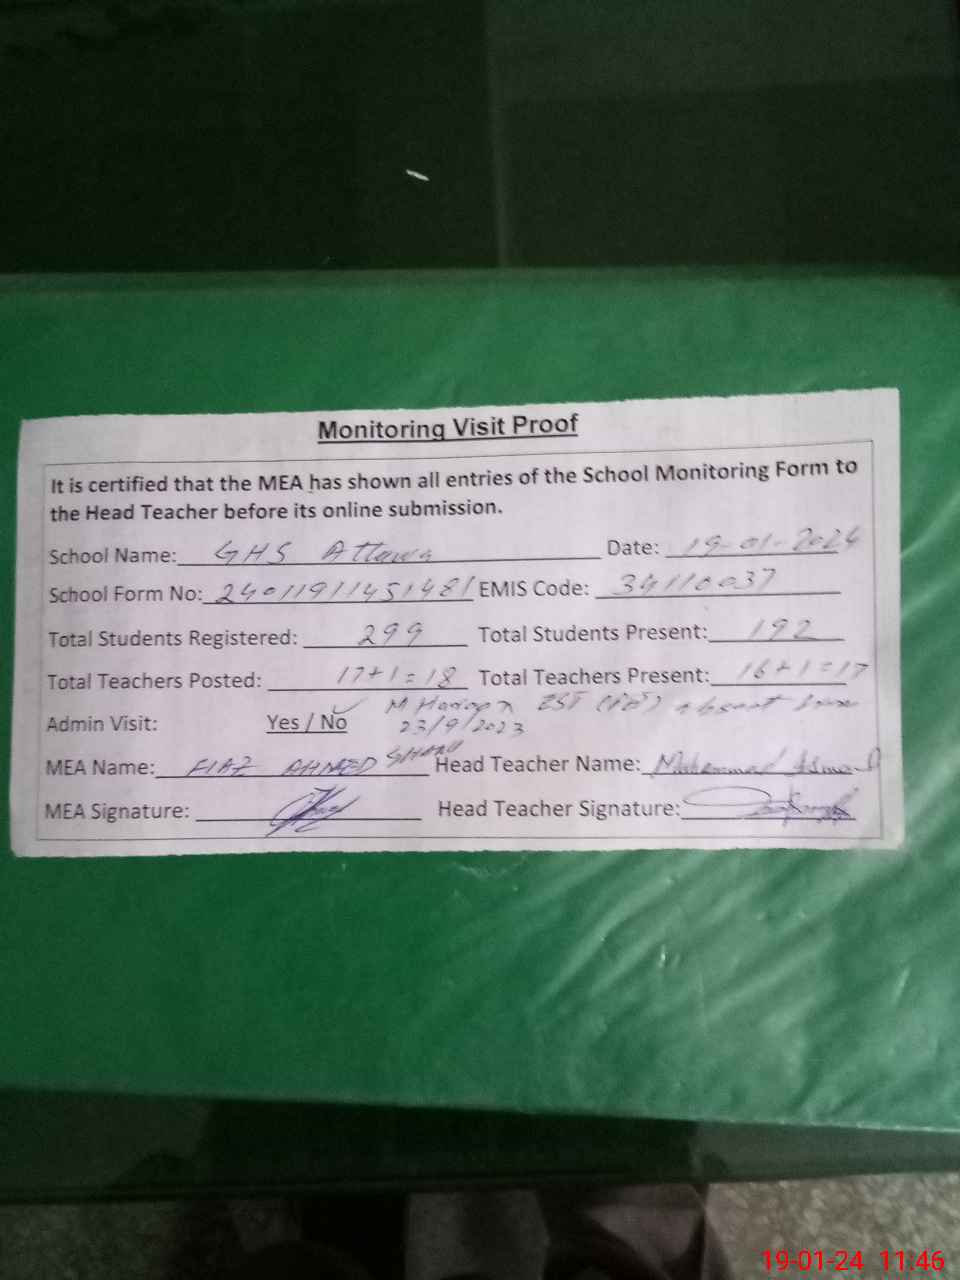 Monitoring Visit Proof
It is certified that the MEA has shown all entries of the School Monitoring Form to
the Head Teacher before its online submission.
School Name: GHS Attawa Date: 19-01-2024
School Form No: 24011911451481 EMIS Code: 34110037
Total Students Registered: 299 Total Students Present: 192
Total Teachers Posted: 17+1=18 Total Teachers Present: 16+1=17
M Haroon EST absent from
Admin Visit: Yes / No 23/9/2023
MEA Name: FIAZ AHMED Head Teacher Name: Muhammad
MEA Signature: Head Teacher Signature:
19-01-24 11:46